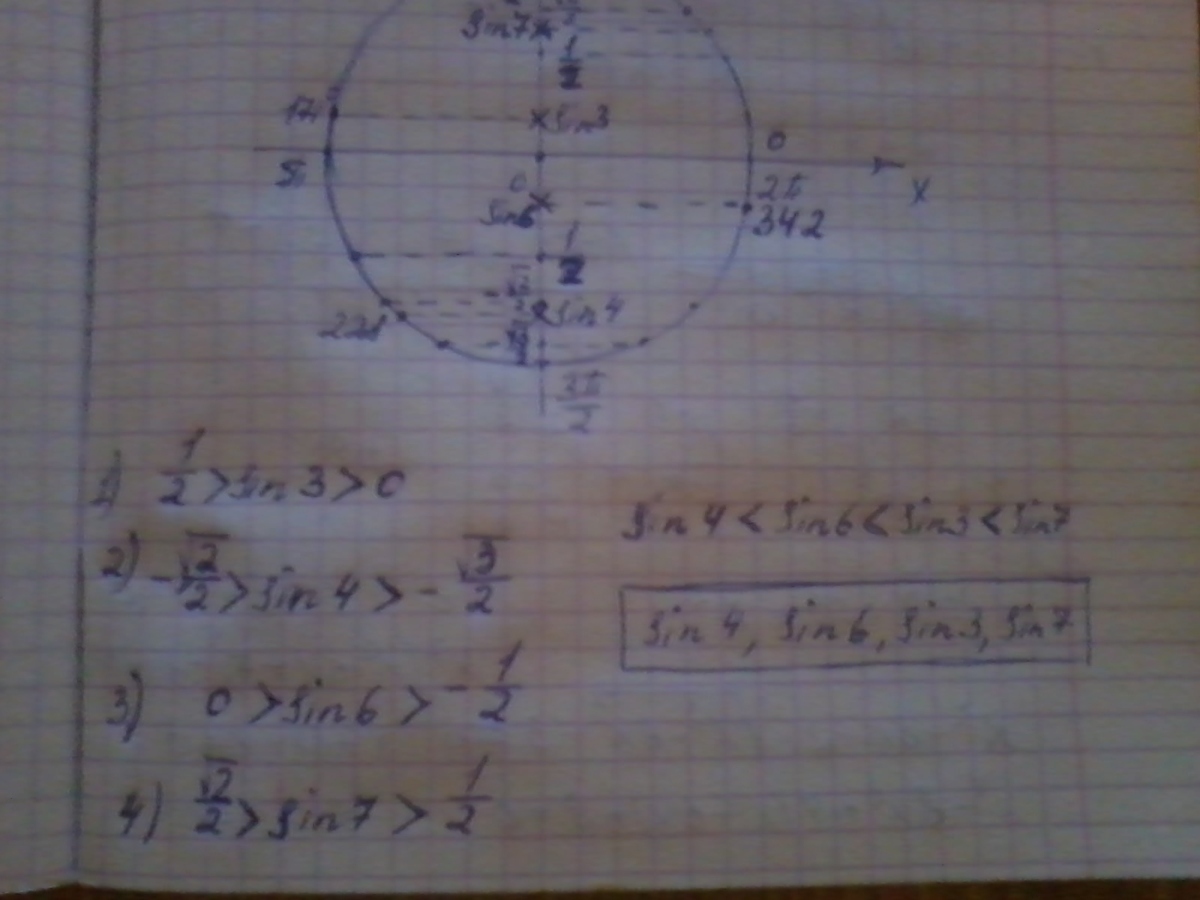 sin7
1/2
171
sin3
0
π
2π
x
0
sin6
342
1/2
sin4
3π/2
1) 1/2 > sin 3 > 0
2) -√2/2 > sin 4 > -√3/2
3) 0 > sin 6 > -1/2
4) √2/2 > sin 7 > 1/2
sin 4 < sin 6 < sin 3 < sin 7
sin 4, sin 6, sin 3, sin 7